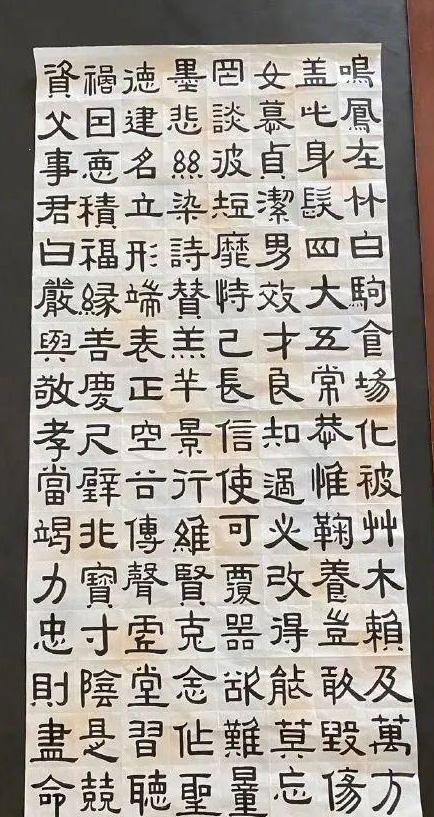 鳴鳳在竹白駒食場化被艸木賴及萬方
蓋此身髮四大五常恭惟鞠養豈敢毀傷
女慕貞潔男效才良知過必改得能莫忘
罔談彼短靡恃己長信使可覆器欲難量
墨悲絲染詩贊羔羊景行維賢克念作聖
德建名立形端表正空谷傳聲虛堂習聽
禍因惡積福緣善慶尺璧非寶寸陰是競
資父事君曰嚴與敬孝當竭力忠則盡命